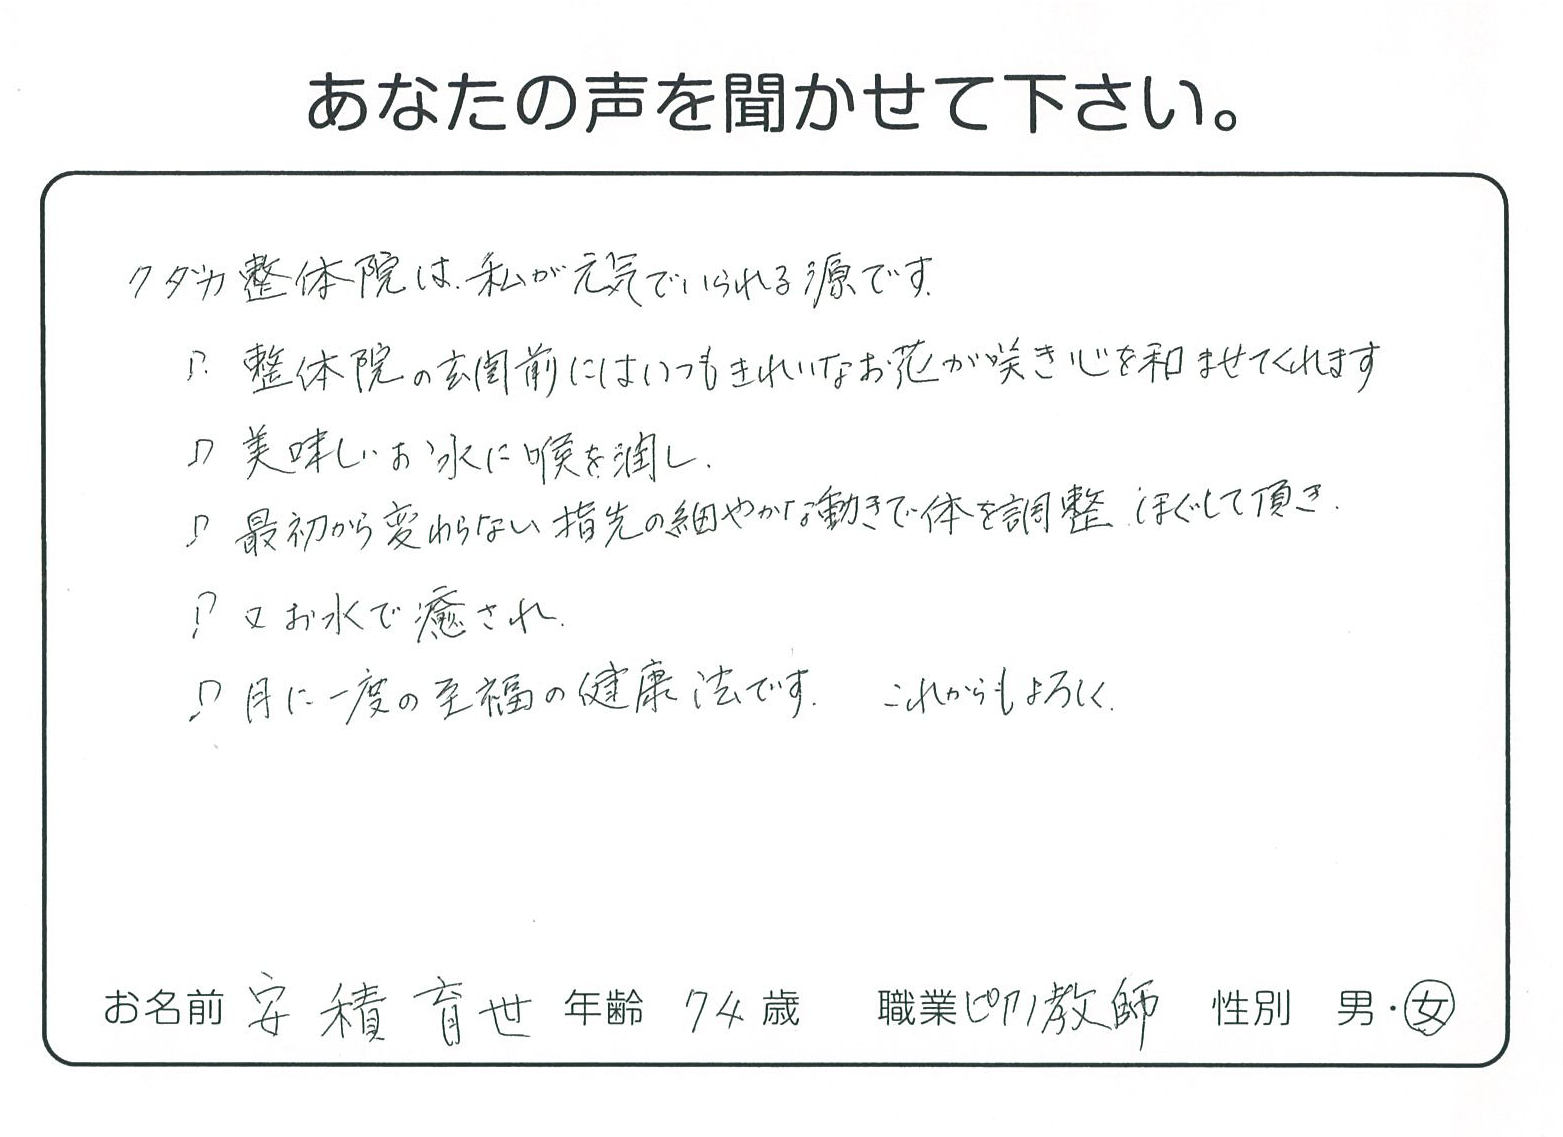 あなたの声を聞かせて下さい。
クダカ整体院は、私が元気でいられる源です。
♫ 整体院の玄関前にはいつもきれいなお花が咲き心を和ませてくれます
♫ 美味しいお水に喉を潤し、
♫ 最初から変わらない指先の細やかな動きで体を調整、ほぐして頂き、
♫ 又お水で癒され、
♫ 月に一度の至福の健康法です。 これからもよろしく。
お名前 安積育世 年齢 74歳 職業 ピアノ教師 性別 男・女